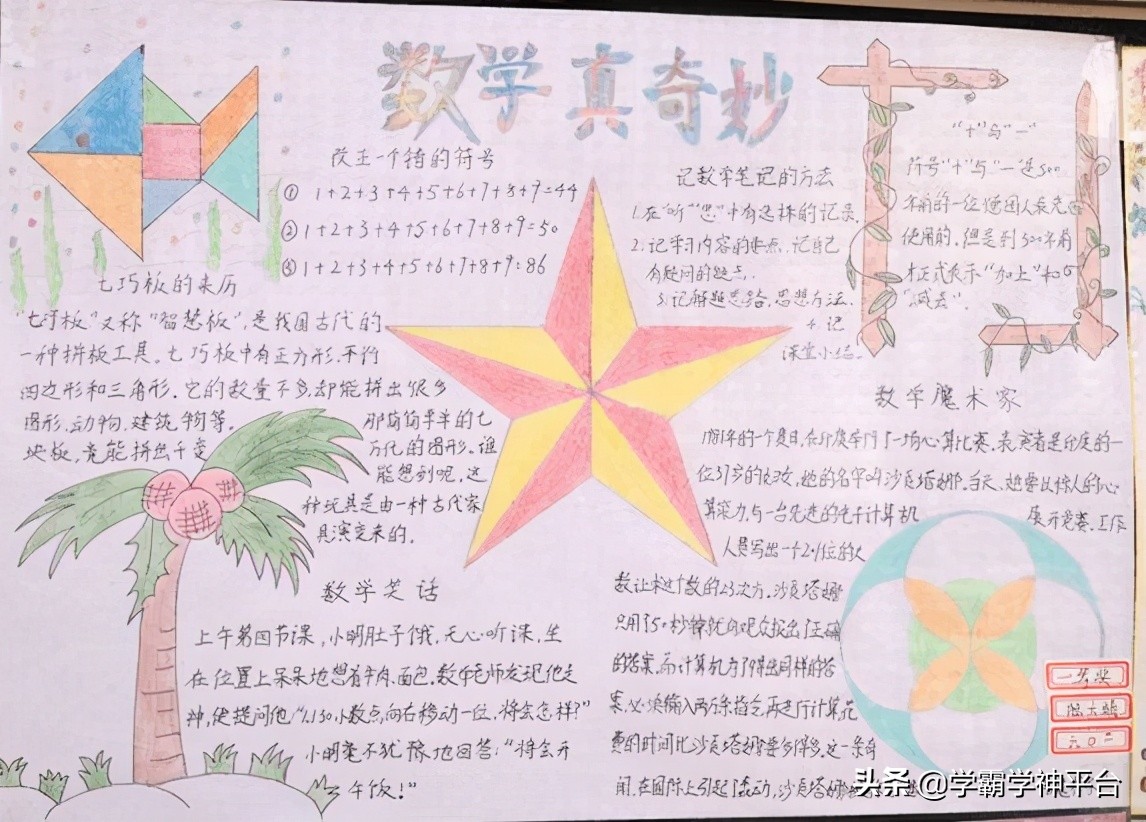 数学真奇妙
改正一个错的符号
① 1+2+3+4+5+6+7+8+9=44
② 1+2+3+4+5+6+7+8+9=50
③ 1+2+3+4+5+6+7+8+9=86
七巧板的来历
"七巧板"又称"智慧板",是我国古代的
一种拼板工具。七巧板中有正方形,平行
四边形和三角形,它的数量不多,却能拼出很多
图形,动物,建筑物等。
那简简单单的七
块板,竟能拼出千变
万化的图形。谁
能想到呢,这
种玩具是由一种古代家
具演变来的。
记数学笔记的方法
1.在"听""思"中有选择的记录。
2.记学习内容的要点,记自己
有疑问的疑点,
3.记解题思路,思想方法,
4.记
课堂小结。
"+"与"-"
符号"+"与"-"是500
年前的一位德国人最先
使用的,但是到300年前
才正式表示"加上"和
"减去"。
数学魔术家
1981年的一个夏日,在印度举行了一场心算比赛。表演者是印度的一
位37岁的妇女,她的名字叫沙贡塔娜。当天,她要以惊人的心
算能力,与一台先进的电子计算机
展开竞赛。工作
人员写出一个201位的大
数让求这个数的23次方。沙贡塔娜
只用了50秒钟就向观众报出了正确
的答案。而计算机为了得出同样的答
案,必须输入两万条指令,再进行计算,花
费的时间比沙贡塔娜要多得多。这一条奇
闻,在国际上引起了轰动,沙贡塔娜
数学笑话
上午第四节课,小明肚子饿,无心听课,坐
在位置上呆呆地想着牛肉、面包。数学老师发现他走
神,便提问他:"1.130,小数点向右移动一位,将会怎样?"
小明毫不犹豫地回答:"将会开
午饭!"
一等奖
六〇二
头条@学霸学神平台